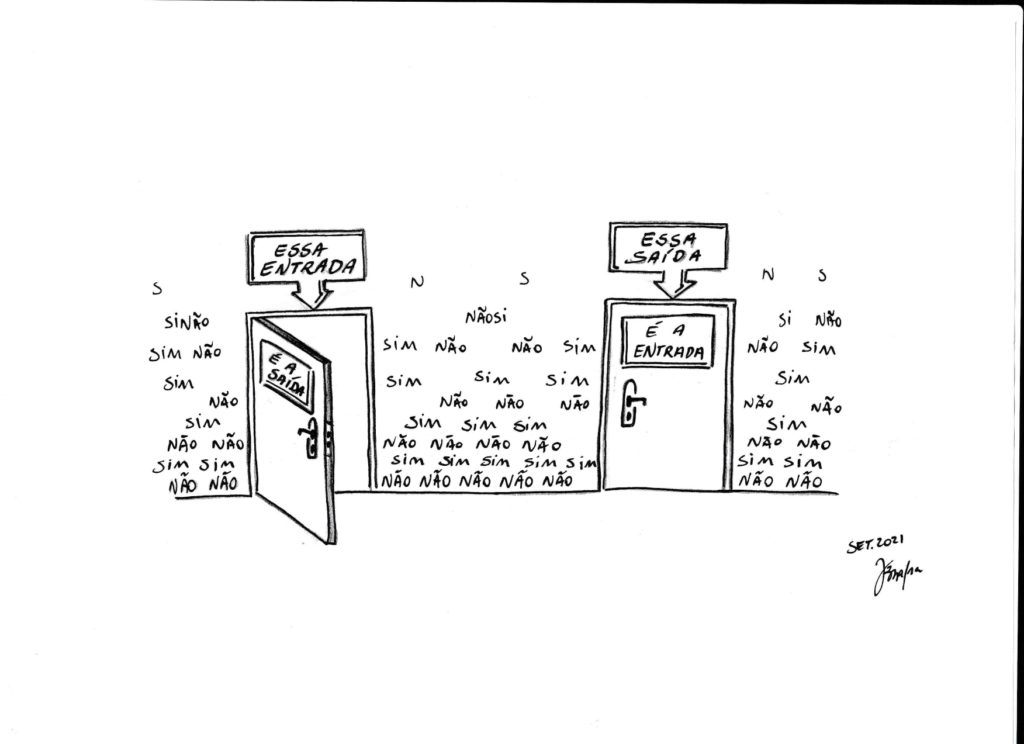 ESSA
ENTRADA
ESSA
SAÍDA
S
N S
N S
É A
SAÍDA
É A
ENTRADA
SINÃO
NÃOSI
SI NÃO
SIM NÃO
SIM NÃO NÃO SIM
NÃO SIM
SIM
SIM SIM SIM
SIM
NÃO
NÃO NÃO NÃO
NÃO NÃO
SIM
SIM SIM SIM
SIM
NÃO NÃO
NÃO NÃO NÃO NÃO
NÃO NÃO
SIM SIM
SIM SIM SIM SIM SIM
SIM SIM
NÃO NÃO
NÃO NÃO NÃO NÃO NÃO
NÃO NÃO
SET.2021